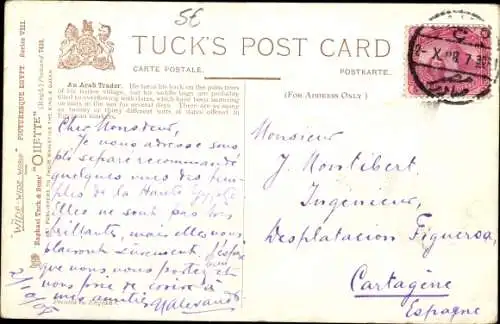 5£
TUCK'S POST CARD
CARTE POSTALE.
POSTKARTE.
(FOR ADDRESS ONLY)
"WIDE-WIDE-WORLD" PICTURESQUE EGYPT. Series VIII.
Raphael Tuck & Sons' "OILETTE" (Regd.) Postcard
PUBLISHERS TO THEIR MAJESTIES THE KING & QUEEN
An Arab Trader. He turns his back on the palm trees
of his native village, but his saddle bags are probably
filled to overflowing with dates, which have been
in the sun for several days. There are as many
as twenty or thirty different sorts of dates offered in
2- X 08 7
Cher Monsieur,
Je vous adresse sous
pli séparé recommandé
quelques vues des
de la Haute Egypte
Elles ne sont pas très
brillantes, mais elles vous
plairont sûrement. J'espère
que vous vous portez bien et
vous prie de croire à
mes amitiés
2/10/08
Monsieur
J. Montibert
Ingénieur,
Desplatacion Figueroa,
Cartagène
Espagne